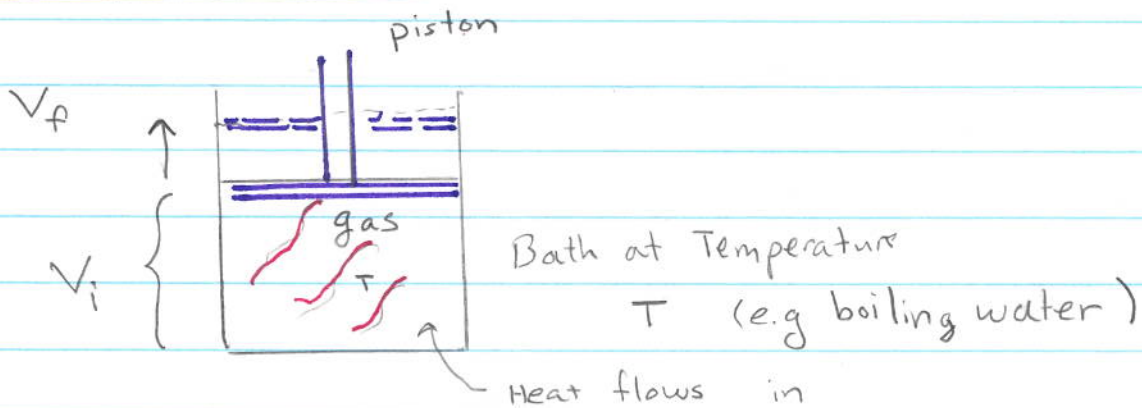 piston
V_f
gas
V_i
T
Bath at Temperature
T (e.g boiling water)
Heat flows in